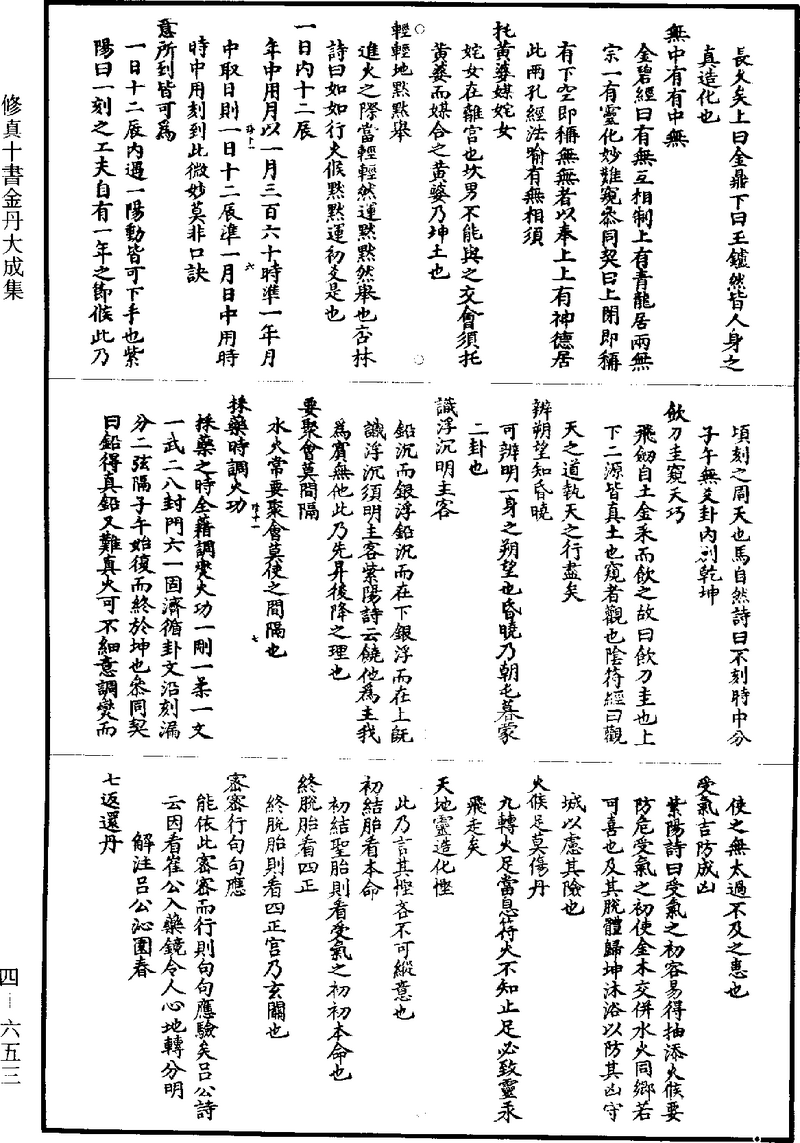 長久矣上曰金鼎下曰玉鑪然皆人身之
真造化也
無中有有中無
金碧經曰有無互相制上有青龍居兩無
宗一有靈化妙難窺叅同契曰上閉即稱
有下空即稱無無者以奉上上有神德居
此兩孔經法喻有無相須
托黃婆媒姹女
姹女在離宮也坎男不能與之交會須托
黃婆而媒合之黃婆乃坤土也
輕輕地默默舉
進火之際當輕輕然運默默然舉也杏林
詩曰如如行火候默默運初爻是也
一日內十二辰
年中用月以一月三百六十時準一年月
中取日則一日十二辰準一月日中用時
時中用刻到此微妙莫非口訣
意所到皆可為
一日十二辰內遇一陽動皆可下手也紫
陽曰一刻之工夫自有一年之節候此乃
頃刻之周天也馬自然詩曰不刻時中分
子午無爻卦內別乾坤
飲刀圭窺天巧
飛劒自土金釆而飲之故曰飲刀圭也上
下二源皆真土也窺者觀也陰符經曰觀
天之道執天之行盡矣
辨朔望知昏曉
可辨明一身之朔望也昏曉乃朝屯暮蒙
二卦也
識浮沉明主客
鉛沉而銀浮鉛沉而在下銀浮而在上旣
識浮沉須明主客紫陽詩云饒他為主我
為賓無他此乃先昇後降之理也
要聚會莫間隔
水火常要聚會莫使之間隔也
採藥時調火功
採藥之時全藉調燮火功一剛一柔一文
一武二八封門六一固濟循卦文沿刻漏
分二弦隔子午始復而終於坤也叅同契
曰鉛得真鉛又難真火可不細意調燮而
使之無太過不及之患也
受氣吉防成凶
紫陽詩曰受氣之初容易得抽添火候要
防危受氣之初使金木交併水火同鄉若
可喜也及其脫體歸坤沐浴以防其凶守
城以慮其險也
火候足莫傷丹
九轉火足當息符火不知止足必致靈汞
飛走矣
天地靈造化慳
此乃言其慳吝不可縱意也
初結胎看本命
初結聖胎則看受氣之初初本命也
終脫胎看四正
終脫胎則看四正宮乃玄關也
密密行句句應
能依此密密而行則句句應驗矣呂公詩
云因看崔公入藥鏡令人心地轉分明
解注呂公沁園春
七返還丹
修真十書金丹大成集
四—六五三